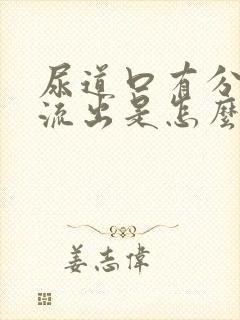 尿道口有分
流出是怎麼
姜志偉